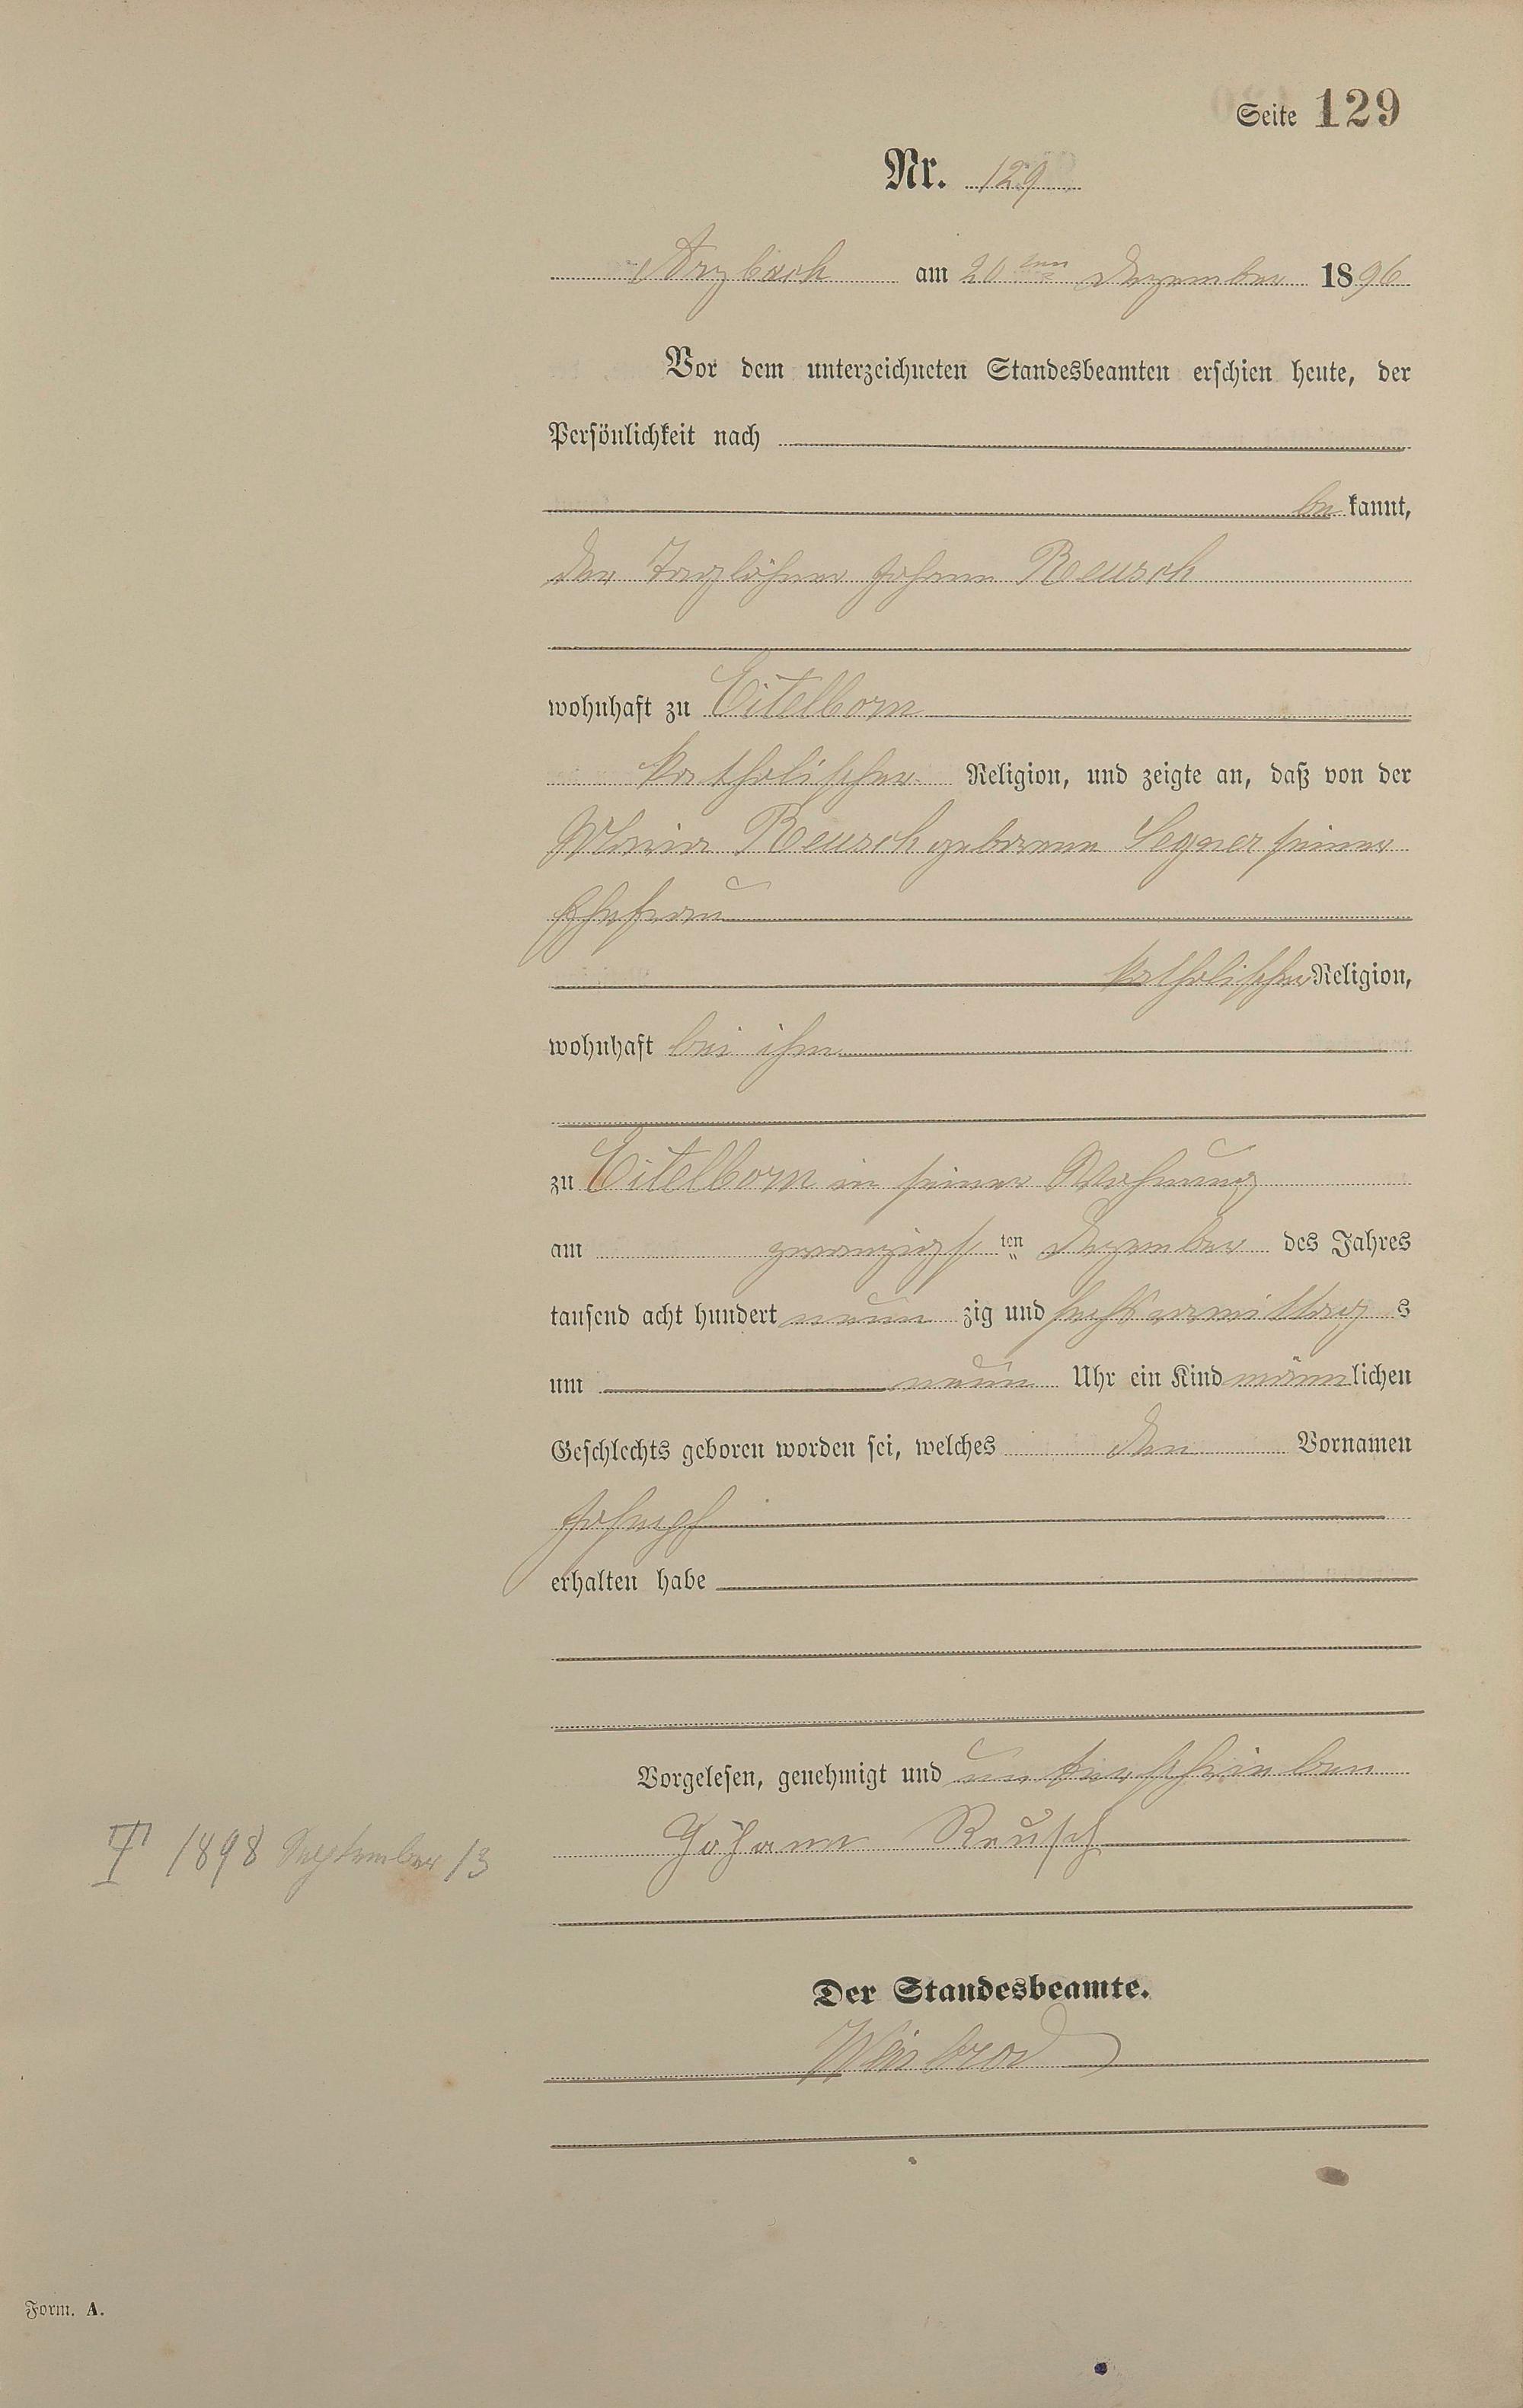 Seite 129
Nr. 129
Arzbach am 20ten Dezember 1896
Vor dem unterzeichneten Standesbeamten erschien heute, der
Persönlichkeit nach
be kannt,
der Taglöhner Johann Reusch
wohnhaft zu Eitelborn
katholischer Religion, und zeigte an, daß von der
Maria Reusch geborene Segner seiner
Ehefrau
katholischer Religion,
wohnhaft bei ihm
zu Eitelborn in seiner Wohnung
am zwanzigsten Dezember des Jahres
tausend acht hundert neun zig und sechs vormittags
um neun Uhr ein Kind männlichen
Geschlechts geboren worden sei, welches den Vornamen
Joseph
erhalten habe
Vorgelesen, genehmigt und unterschrieben
Johann Reusch
† 1898 September 13
Der Standesbeamte.
Weisbrod
Form. A.